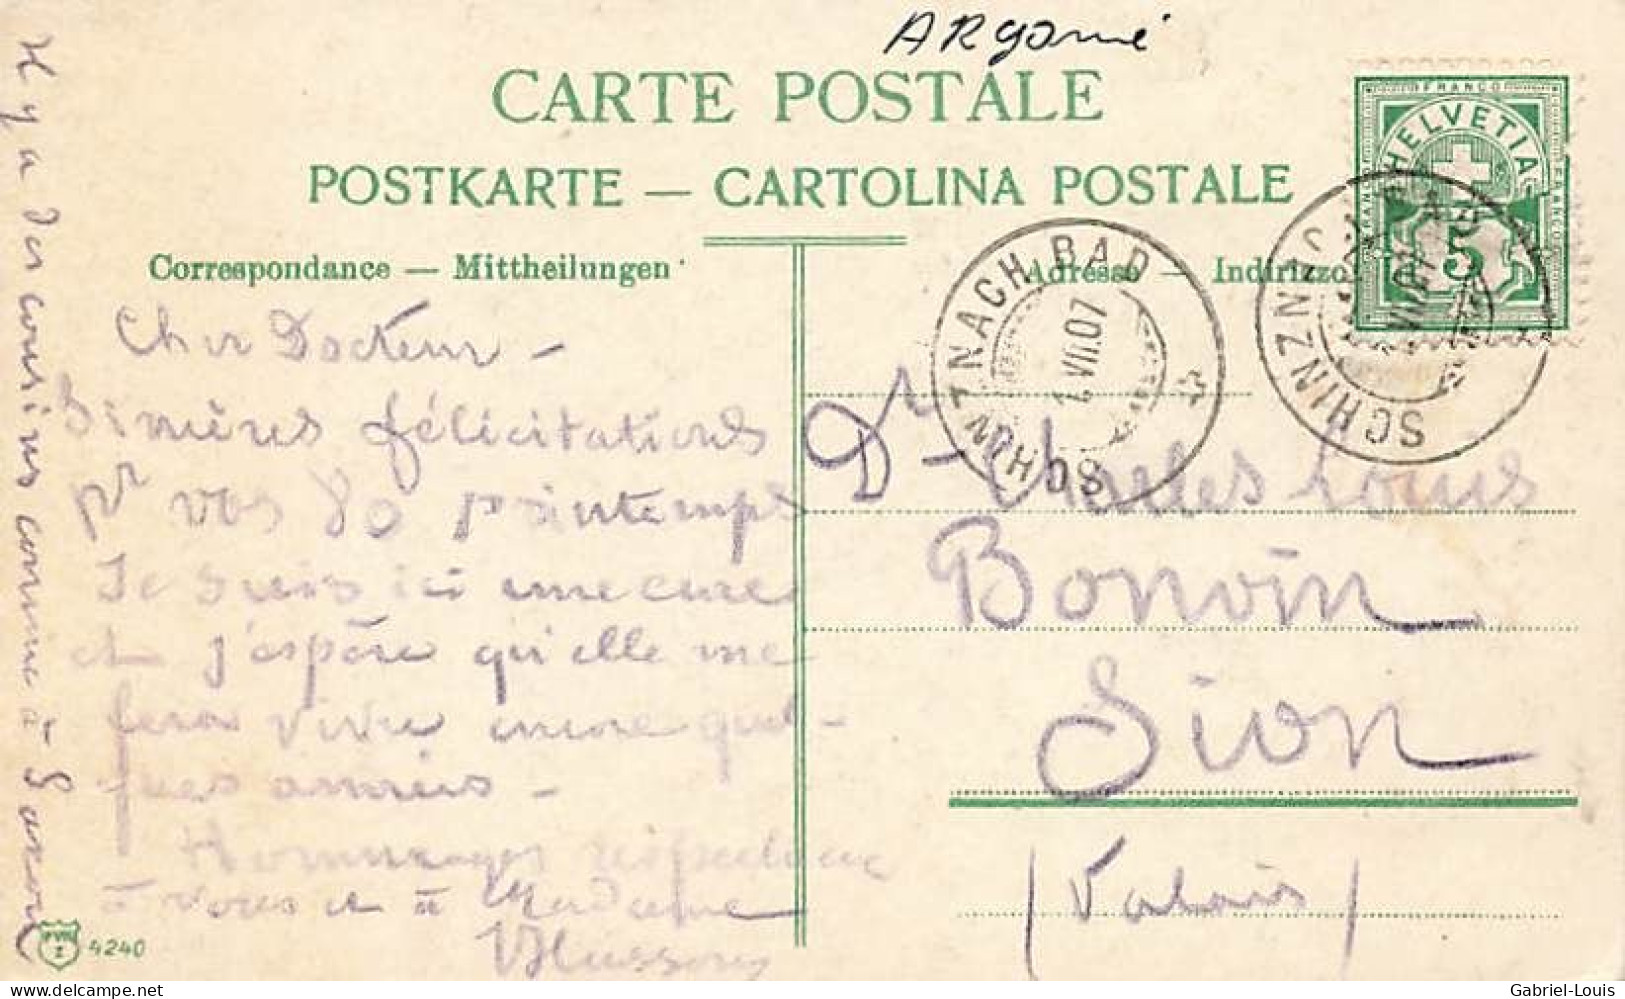 ARgovie
CARTE POSTALE
POSTKARTE — CARTOLINA POSTALE
Correspondance — Mittheilungen
Adresse — Indirizzo
FRANCO
HELVETIA
FRANCO
FRANCO
5
SCHINZNACH BAD
1.VII.07
SCHINZNACH BAD
VII.07
Cher Docteur —
Sincères félicitations
pr vos 80 printemps
Je suis ici une cure
et j'espère qu'elle me
fera vivre encore quel-
ques années —
Hommages respectueux
à vous et à Madame
Il y a des cousins comme à
Dr Charles Louis
Bonvin
Sion
(Valais)
4240
delcampe.net
Gabriel-Louis